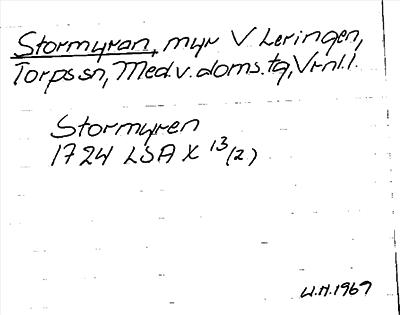 Stormyran, myr V Leringen,
Torps sn, Med.v.doms.tg, Vrnl.l.
Stormyren
1724 LSA X 13(2)
U.N.1969